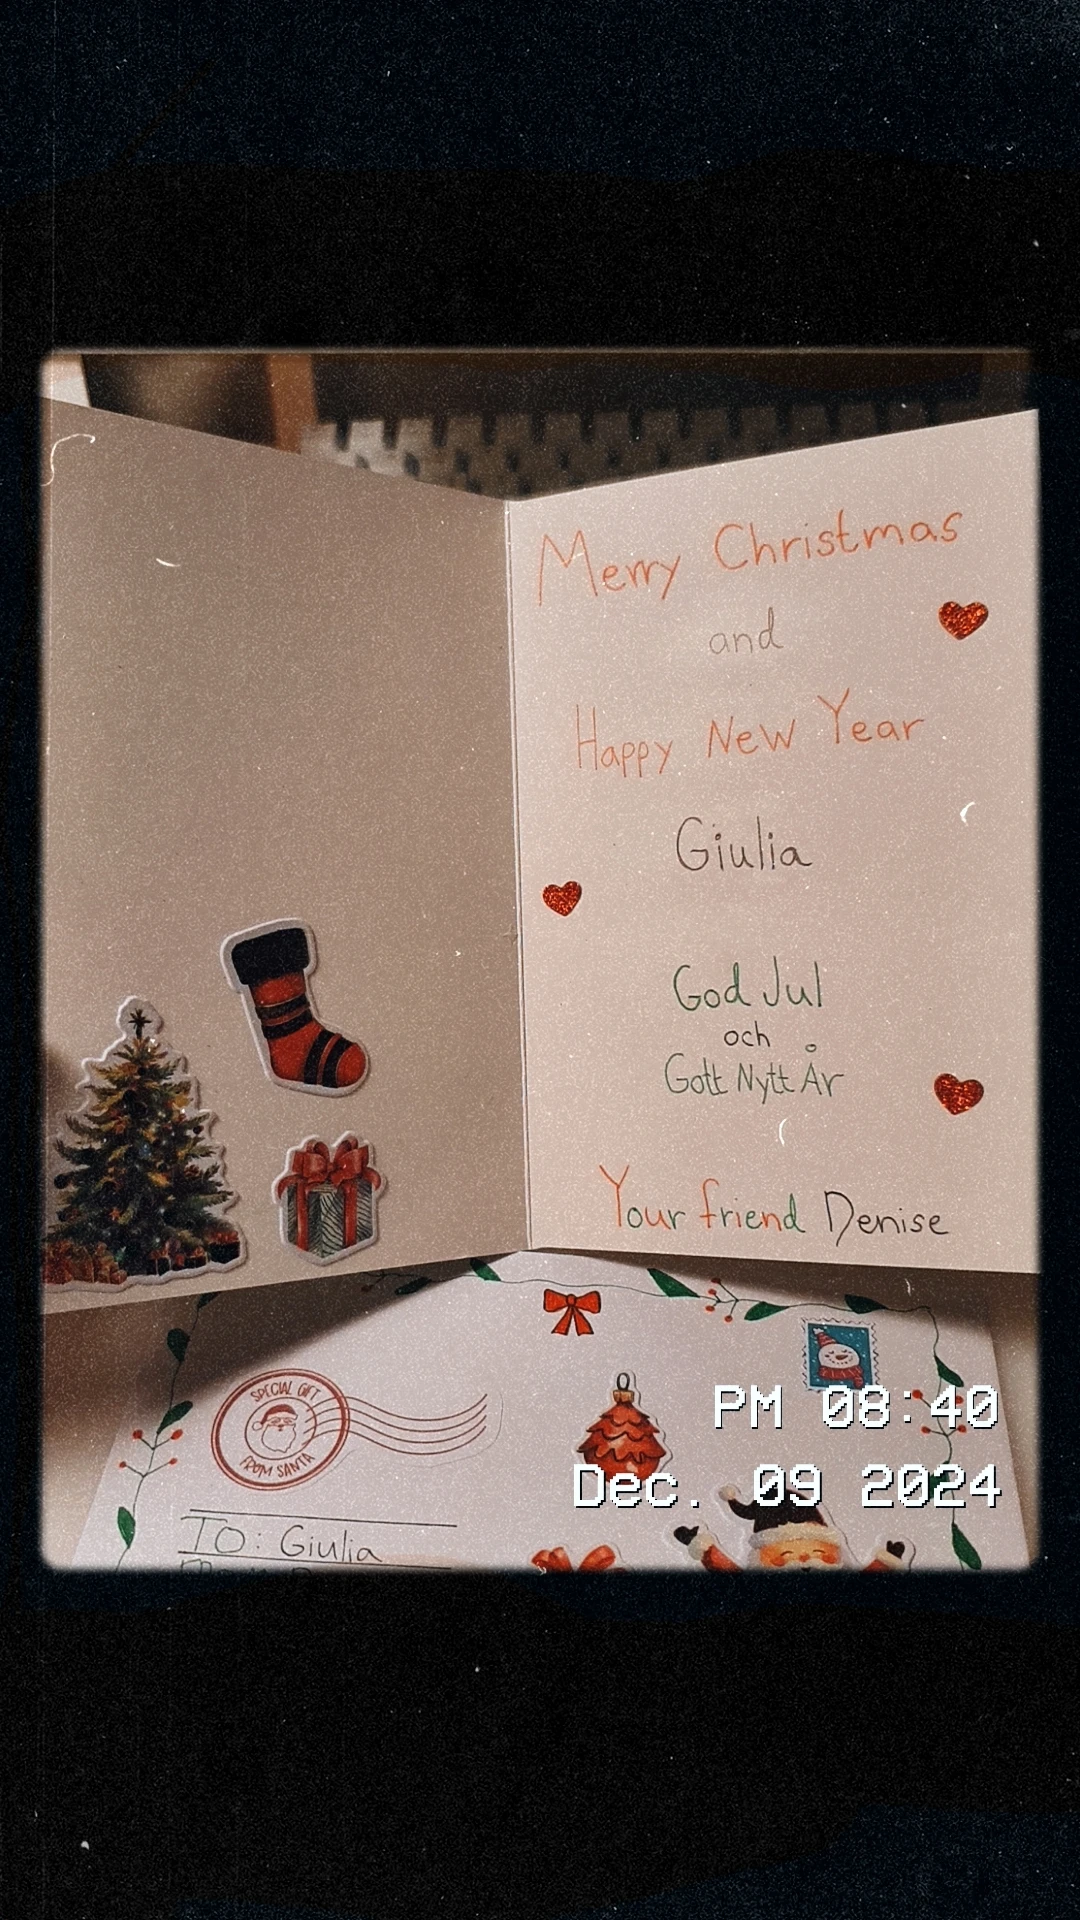 Merry Christmas
and
Happy New Year
Giulia
God Jul
och
Gott Nytt År
Your friend Denise
SPECIAL GIFT
FROM SANTA
PM 08:40
Dec. 09 2024
TO: Giulia